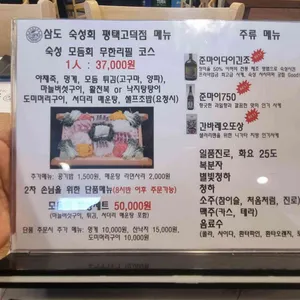 삼도 숙성회 평택고덕점 메뉴
숙성 모듬회 무한리필 코스
1人 : 37,000원
야채죽, 멍게, 모듬 튀김(고구마, 양파),
마늘버섯구이, 활전복 or 낙지탕탕이
도미머리구이, 서더리 매운탕, 셀프초밥(요청시)
추가메뉴: 공기밥 1,500원, 매운탕 라면사리 2,000원
2차 손님을 위한 단품메뉴(8시만 이후 주문가능)
50,000원
(마늘버섯구이, 튀김, 서더리 매운탕 포함)
단품 주문시 추가 메뉴: 멍게 10,000원, 산낙지 15,000원,
도미머리구이 10,000원
주류 메뉴
준마이다이긴조
준마이750
간바레오또상
일품진로, 화요 25도
복분자
별빛청하
청하
소주(참이슬, 처음처럼, 진로)
맥주(카스, 테라)
음료수
(콜라, 사이다, 환타파인, 환타오렌지,